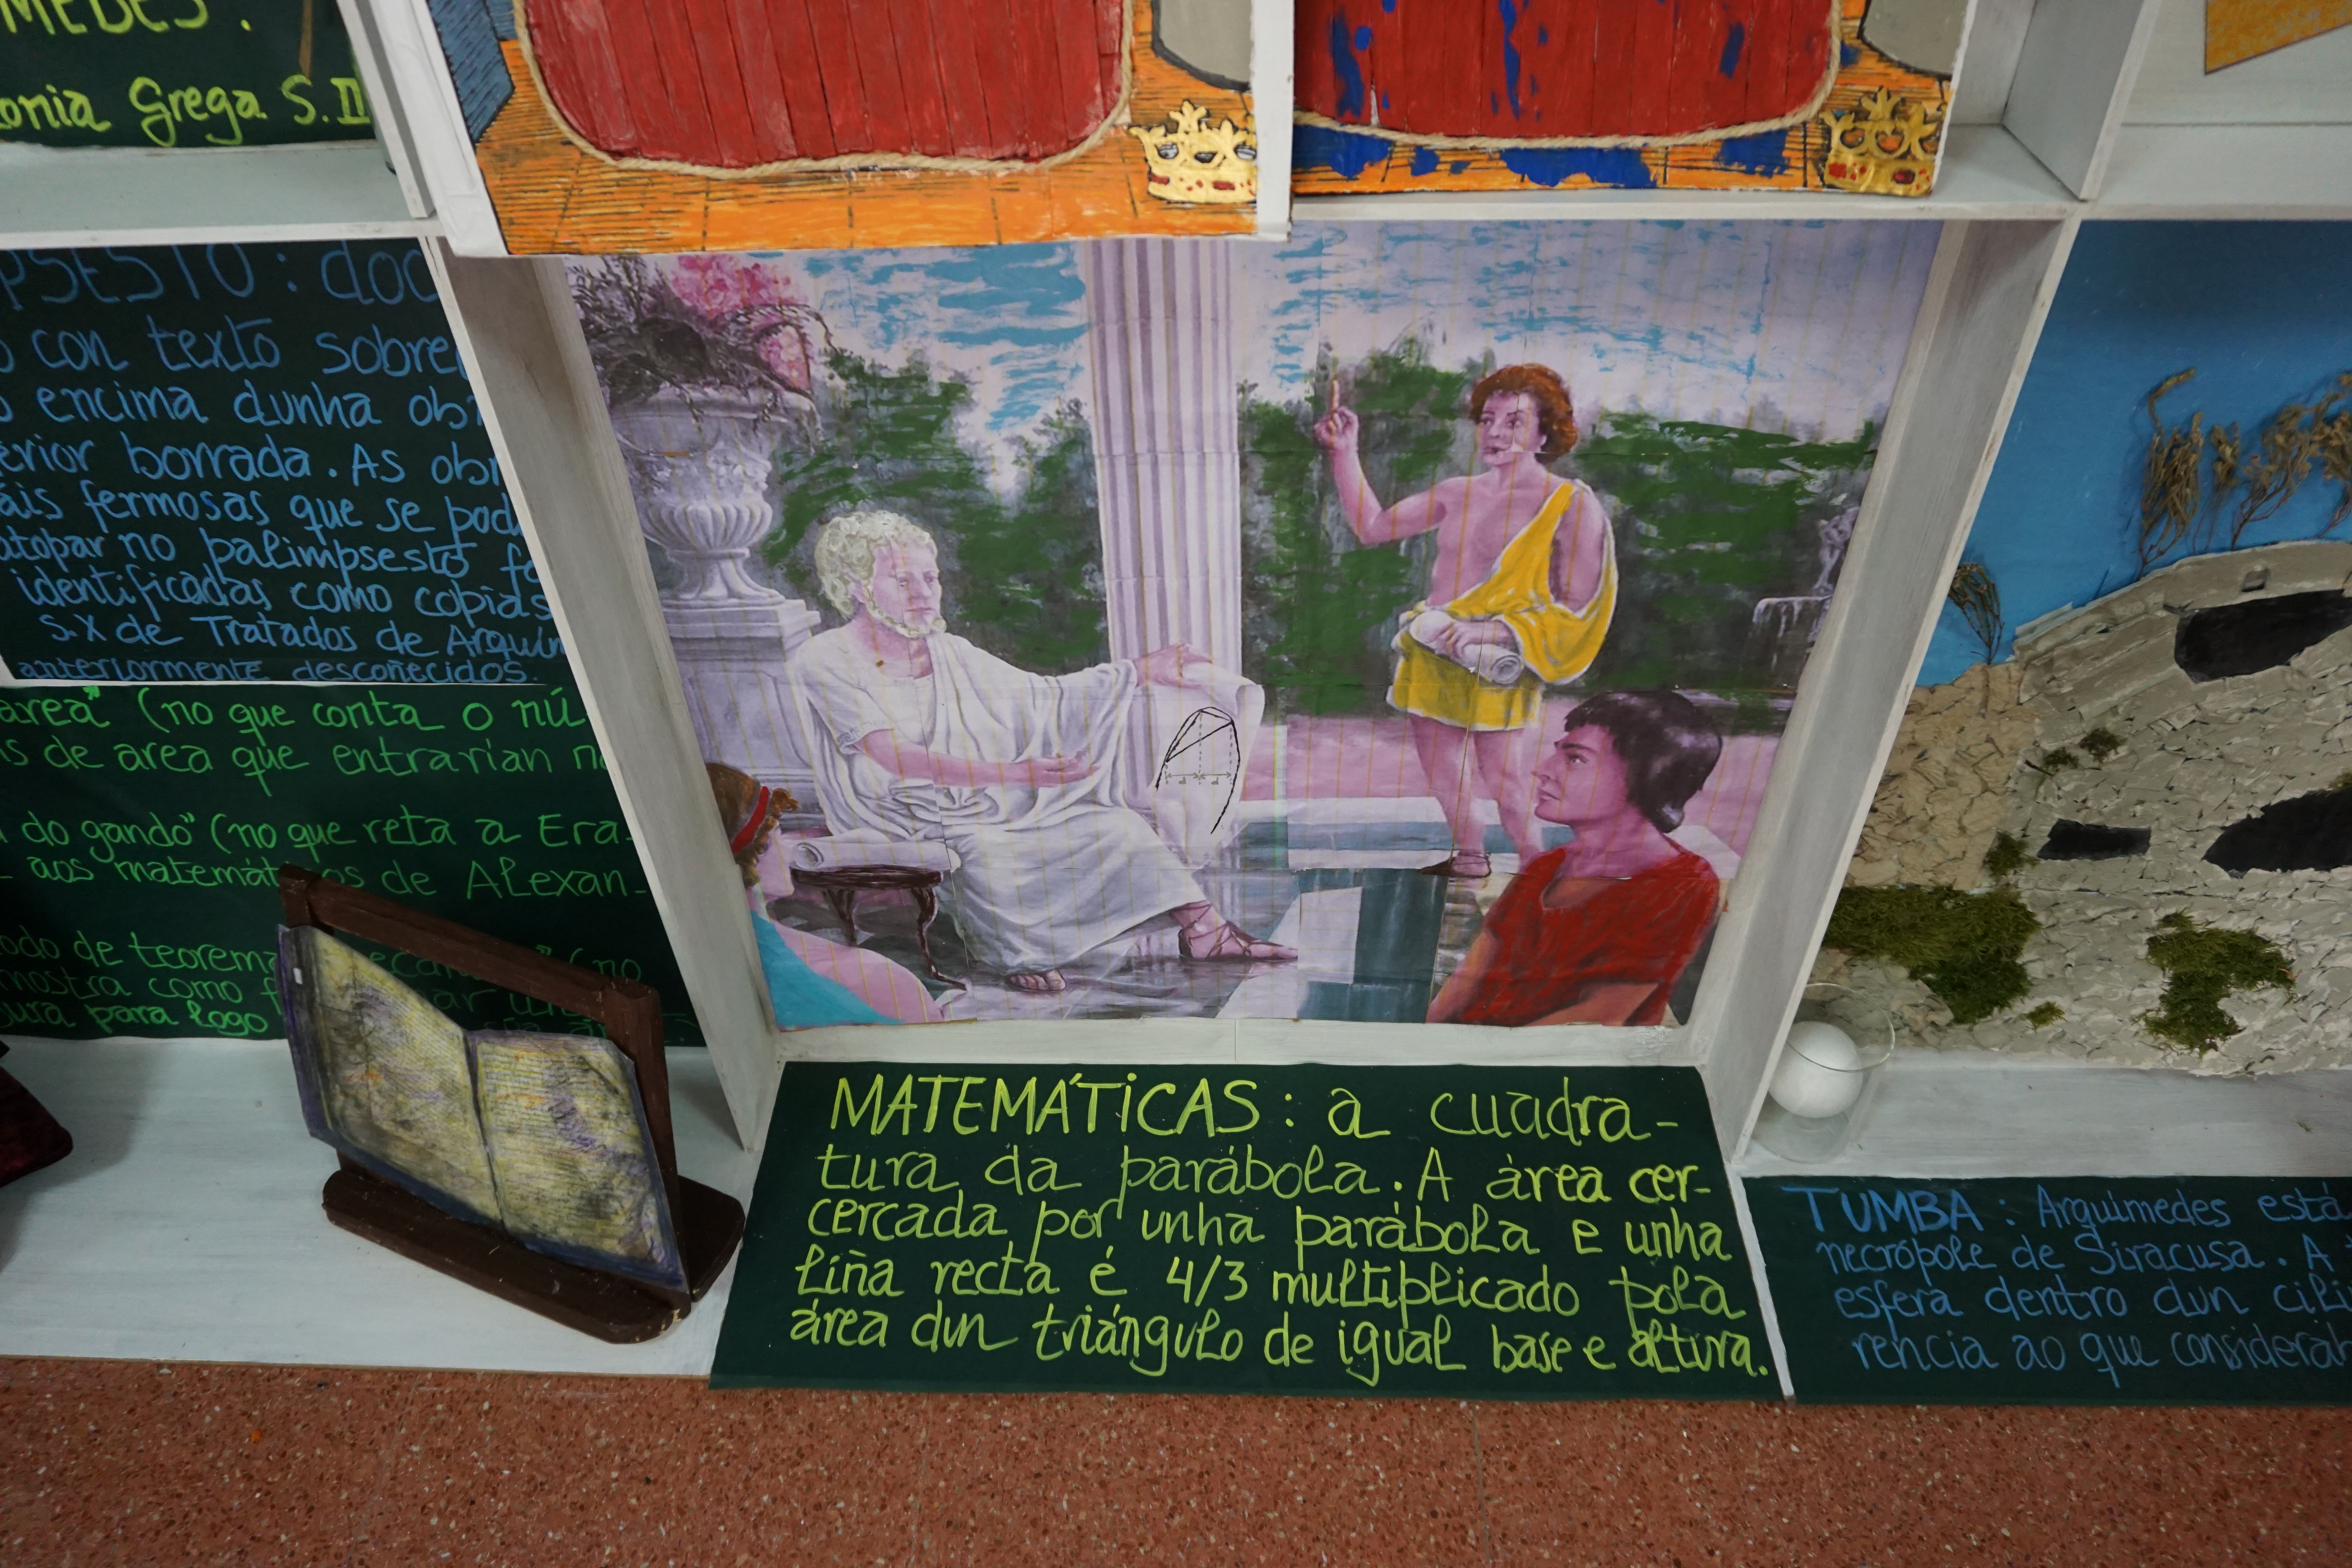 MEDES.
Grega S. II
PSESTO: doc
con texto sobre
encima dunha ob
erior borrada. As obr
áis fermosas que se pod
atopar no palimpsesto fo
identificadas como copias
S. X de Tratados de Arquim
anteriormente descoñecidos.
area" (no que conta o nú
s de area que entrarían n
do gando" (no que reta a Era-
aos matemát os de Alexan-
odo de teorema (no
mostra como f
gura para logo
MATEMÁTICAS: a cuadra-
tura da parábola. A área cer-
cercada por unha parábola e unha
liña recta é 4/3 multiplicado pola
área dun triángulo de igual base e altura.
TUMBA: Arquimedes está
necrópole de Siracusa. A
esfera dentro dun cili
rencia ao que considerab